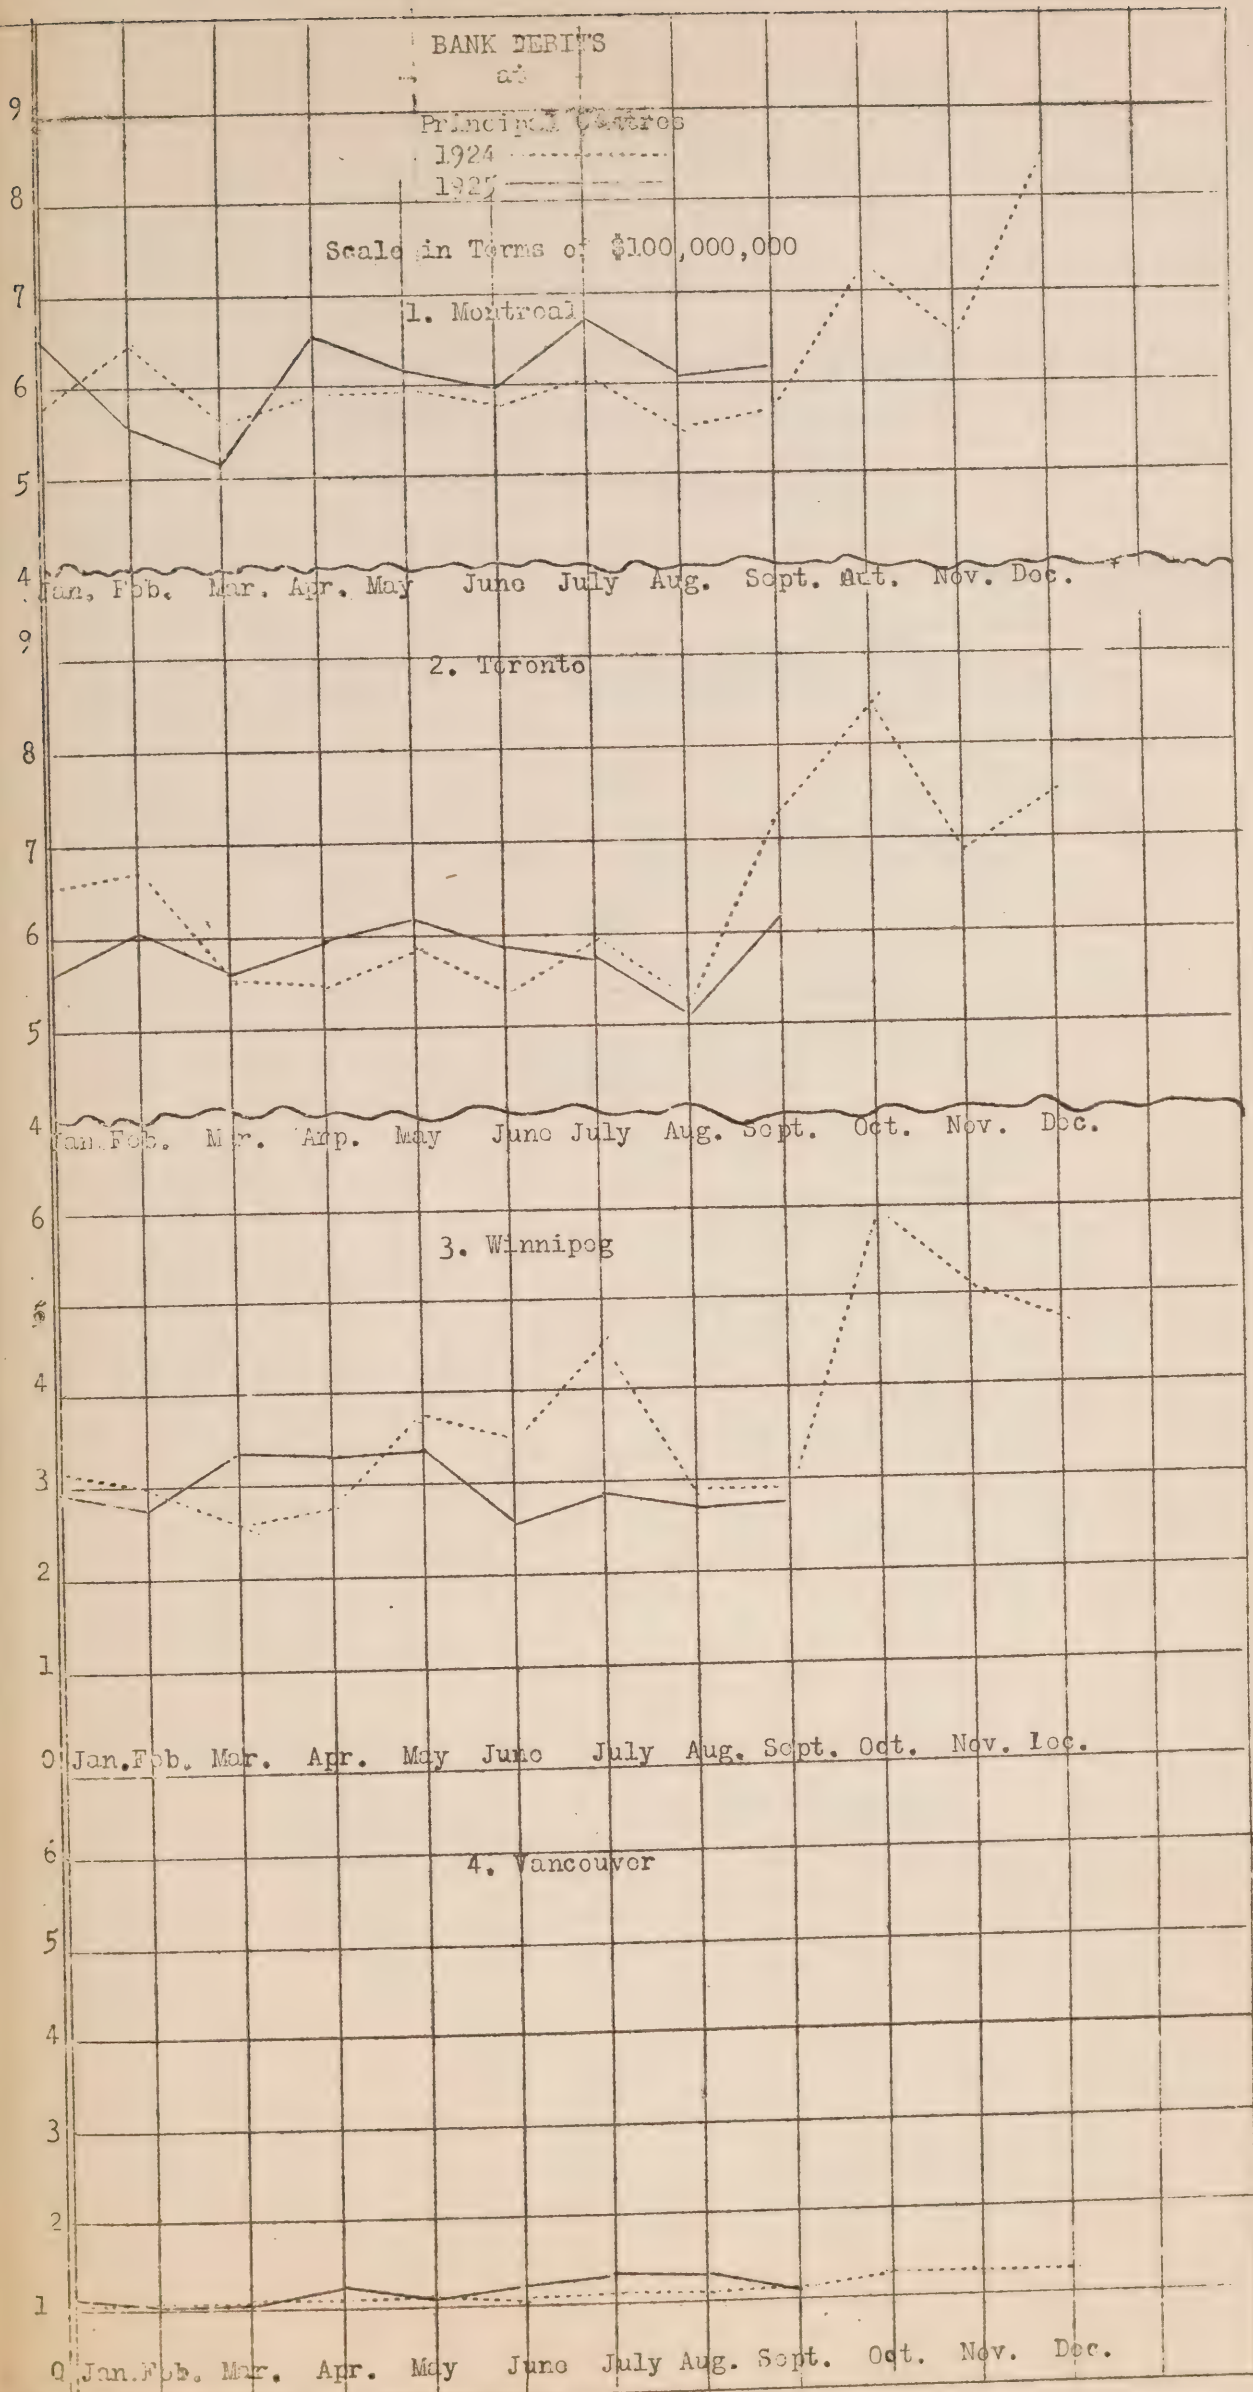 BANK DEBITS
at
Principal Centres
1924
1925
Scale in Terms of $100,000,000
9
8
7
1. Montreal
6
5
4
Jan, Feb. Mar. Apr. May June July Aug. Sept. Oct. Nov. Dec.
9
2. Toronto
8
7
6
5
4
Jan. Feb. Mar. Arp. May June July Aug. Sept. Oct. Nov. Dec.
6
3. Winnipeg
5
4
3
2
1
0 Jan. Feb. Mar. Apr. May June July Aug. Sept. Oct. Nov. Dec.
6
4. Vancouver
5
4
3
2
1
0 Jan. Feb. Mar. Apr. May June July Aug. Sept. Oct. Nov. Dec.